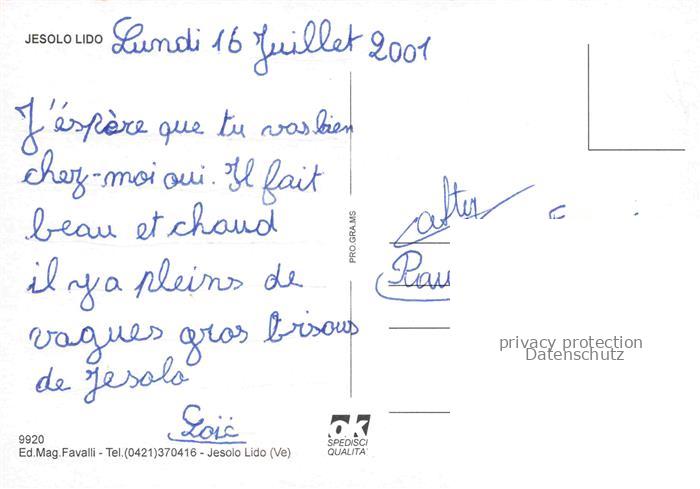 JESOLO LIDO Lundi 16 Juillet 2001
J'éspère que tu vas bien
chez-moi oui. Il fait
beau et chaud
il y a pleins de
vagues gros bisous
de Jesolo
Loïc
PRO.GRA.MS
privacy protection
Datenschutz
ok
SPEDISCI
QUALITA'
9920
Ed.Mag.Favalli - Tel.(0421)370416 - Jesolo Lido (Ve)